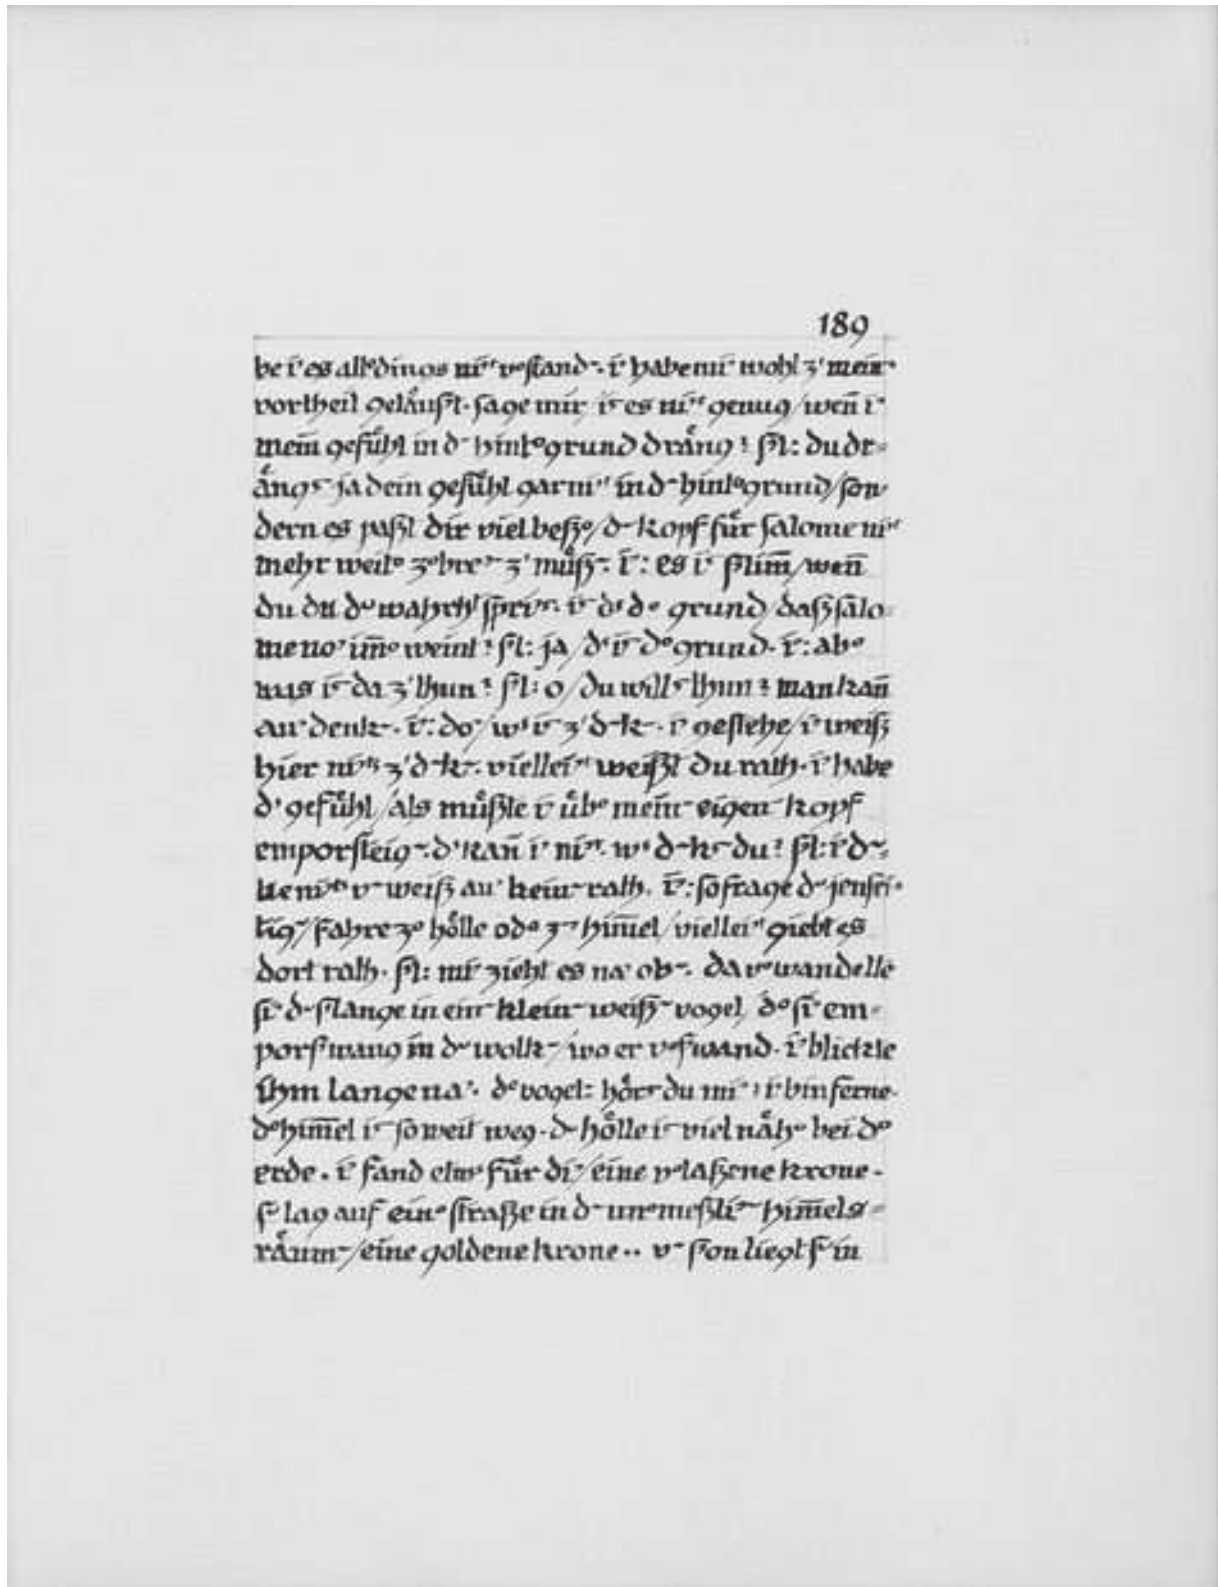 189
be i' es alledings ni't v°stand‾. i' habe mi' wohl z' mein‾
vortheil geläußt. sage mir i‾ es ni't genug / wen̄ i'
mein gefühl in d‾ hint°grund dräng? sl: du dr=
äng‾ ja dein gefühl gar ni't in d‾ hint°grund / son
dern es paßt dir viel beß° / d‾ kopf für salome ni't
mehr weit° z°bre‾ z' müß‾. i': es i' slim̄ / wen̄
du du d° wahrht spri‾. i‾ d' d° grund / daß salo
me no' im̄° weint? sl: ja / d' i‾ d° grund. i': ab°
was i‾ da z' thun? sl: o / du will‾ thun? man kan̄
au' denk‾. i': do' / w' i‾ z' d‾k‾. i' gestehe / i' weiß
hier ni'ts z' d‾k‾. viellei't weißt du rath. i' habe
d' gefühl / als müßte i' üb° mein‾ eigen‾ kopf
emporsteig‾. d' kan̄ i' ni't. w' d‾k‾ du? sl: i' d‾=
ke ni'ts u‾ weiß au' kein‾ rath. i': so frage d‾ jensei=
tig‾ / fahre z° hölle od° z‾ him̄el / viellei't giebt es
dort rath. sl: mi' zieht es na' ob‾. da v°wandelte
si' d‾ slange in ein‾ klein‾ weiß‾ vogel / d° si' em=
porswang in d‾ wolk‾ / wo er v°swand. i' blickte
ihm lange na'. d° vogel: hör‾ du mi'? i' bin ferne.
d° him̄el i‾ so weit weg. d‾ hölle i‾ viel näh° bei d°
erde. i' fand etw' für di' / eine v°laßene krone.
s‾ lag auf ein° straße in d‾ un°meßli'‾ him̄els=
räum‾ / eine goldene krone.. u‾ son liegt s‾ in